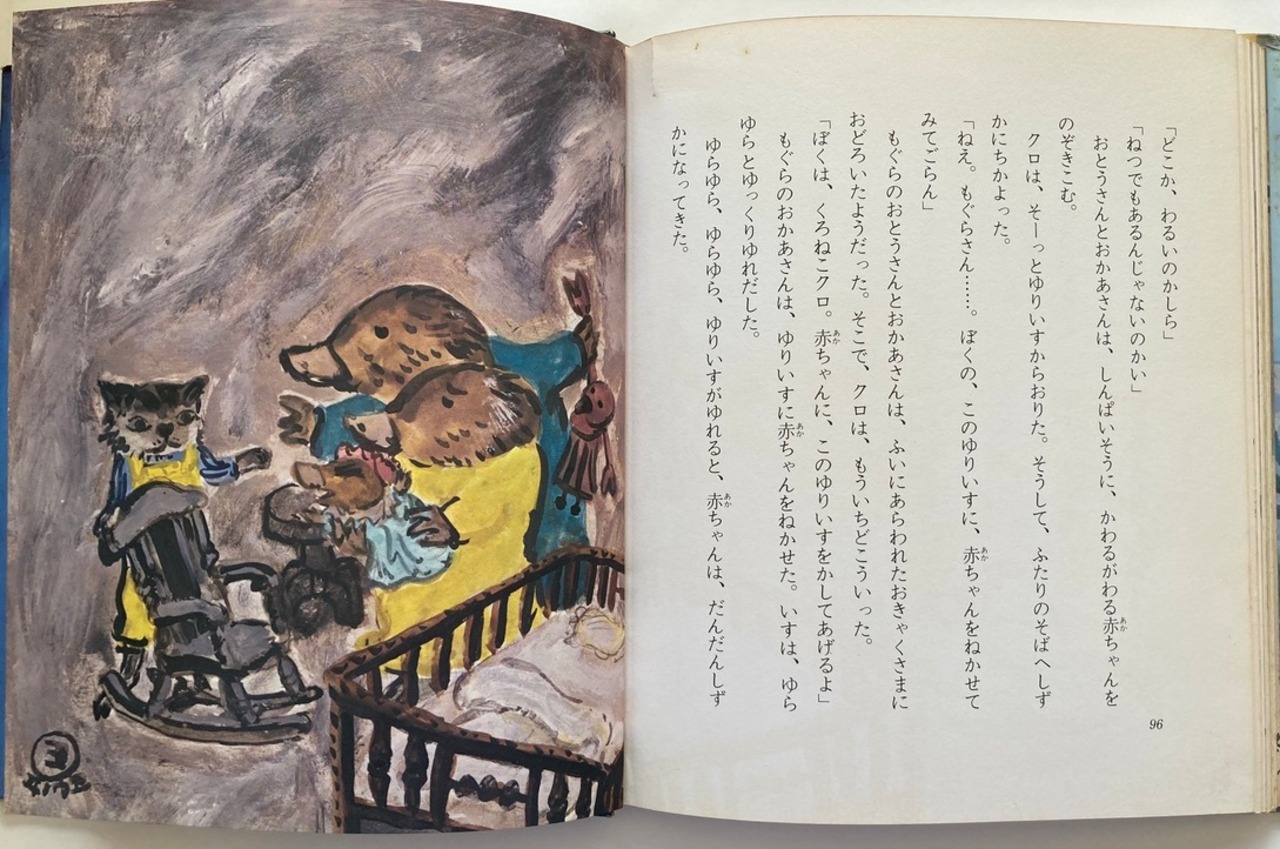 「どこか、わるいのかしら」
「ねつでもあるんじゃないのかい」
おとうさんとおかあさんは、しんぱいそうに、かわるがわる赤ちゃんを
のぞきこむ。
クロは、そーっとゆりいすからおりた。そうして、ふたりのそばへしず
かにちかよった。
「ねえ。もぐらさん……。ぼくの、このゆりいすに、赤ちゃんをねかせて
みてごらん」
もぐらのおとうさんとおかあさんは、ふいにあらわれたおきゃくさまに
おどろいたようだった。そこで、クロは、もういちどこういった。
「ぼくは、くろねこクロ。赤ちゃんに、このゆりいすをかしてあげるよ」
もぐらのおかあさんは、ゆりいすに赤ちゃんをねかせた。いすは、ゆら
ゆらとゆっくりゆれだした。
ゆらゆら、ゆらゆら、ゆりいすがゆれると、赤ちゃんは、だんだんしず
かになってきた。
96